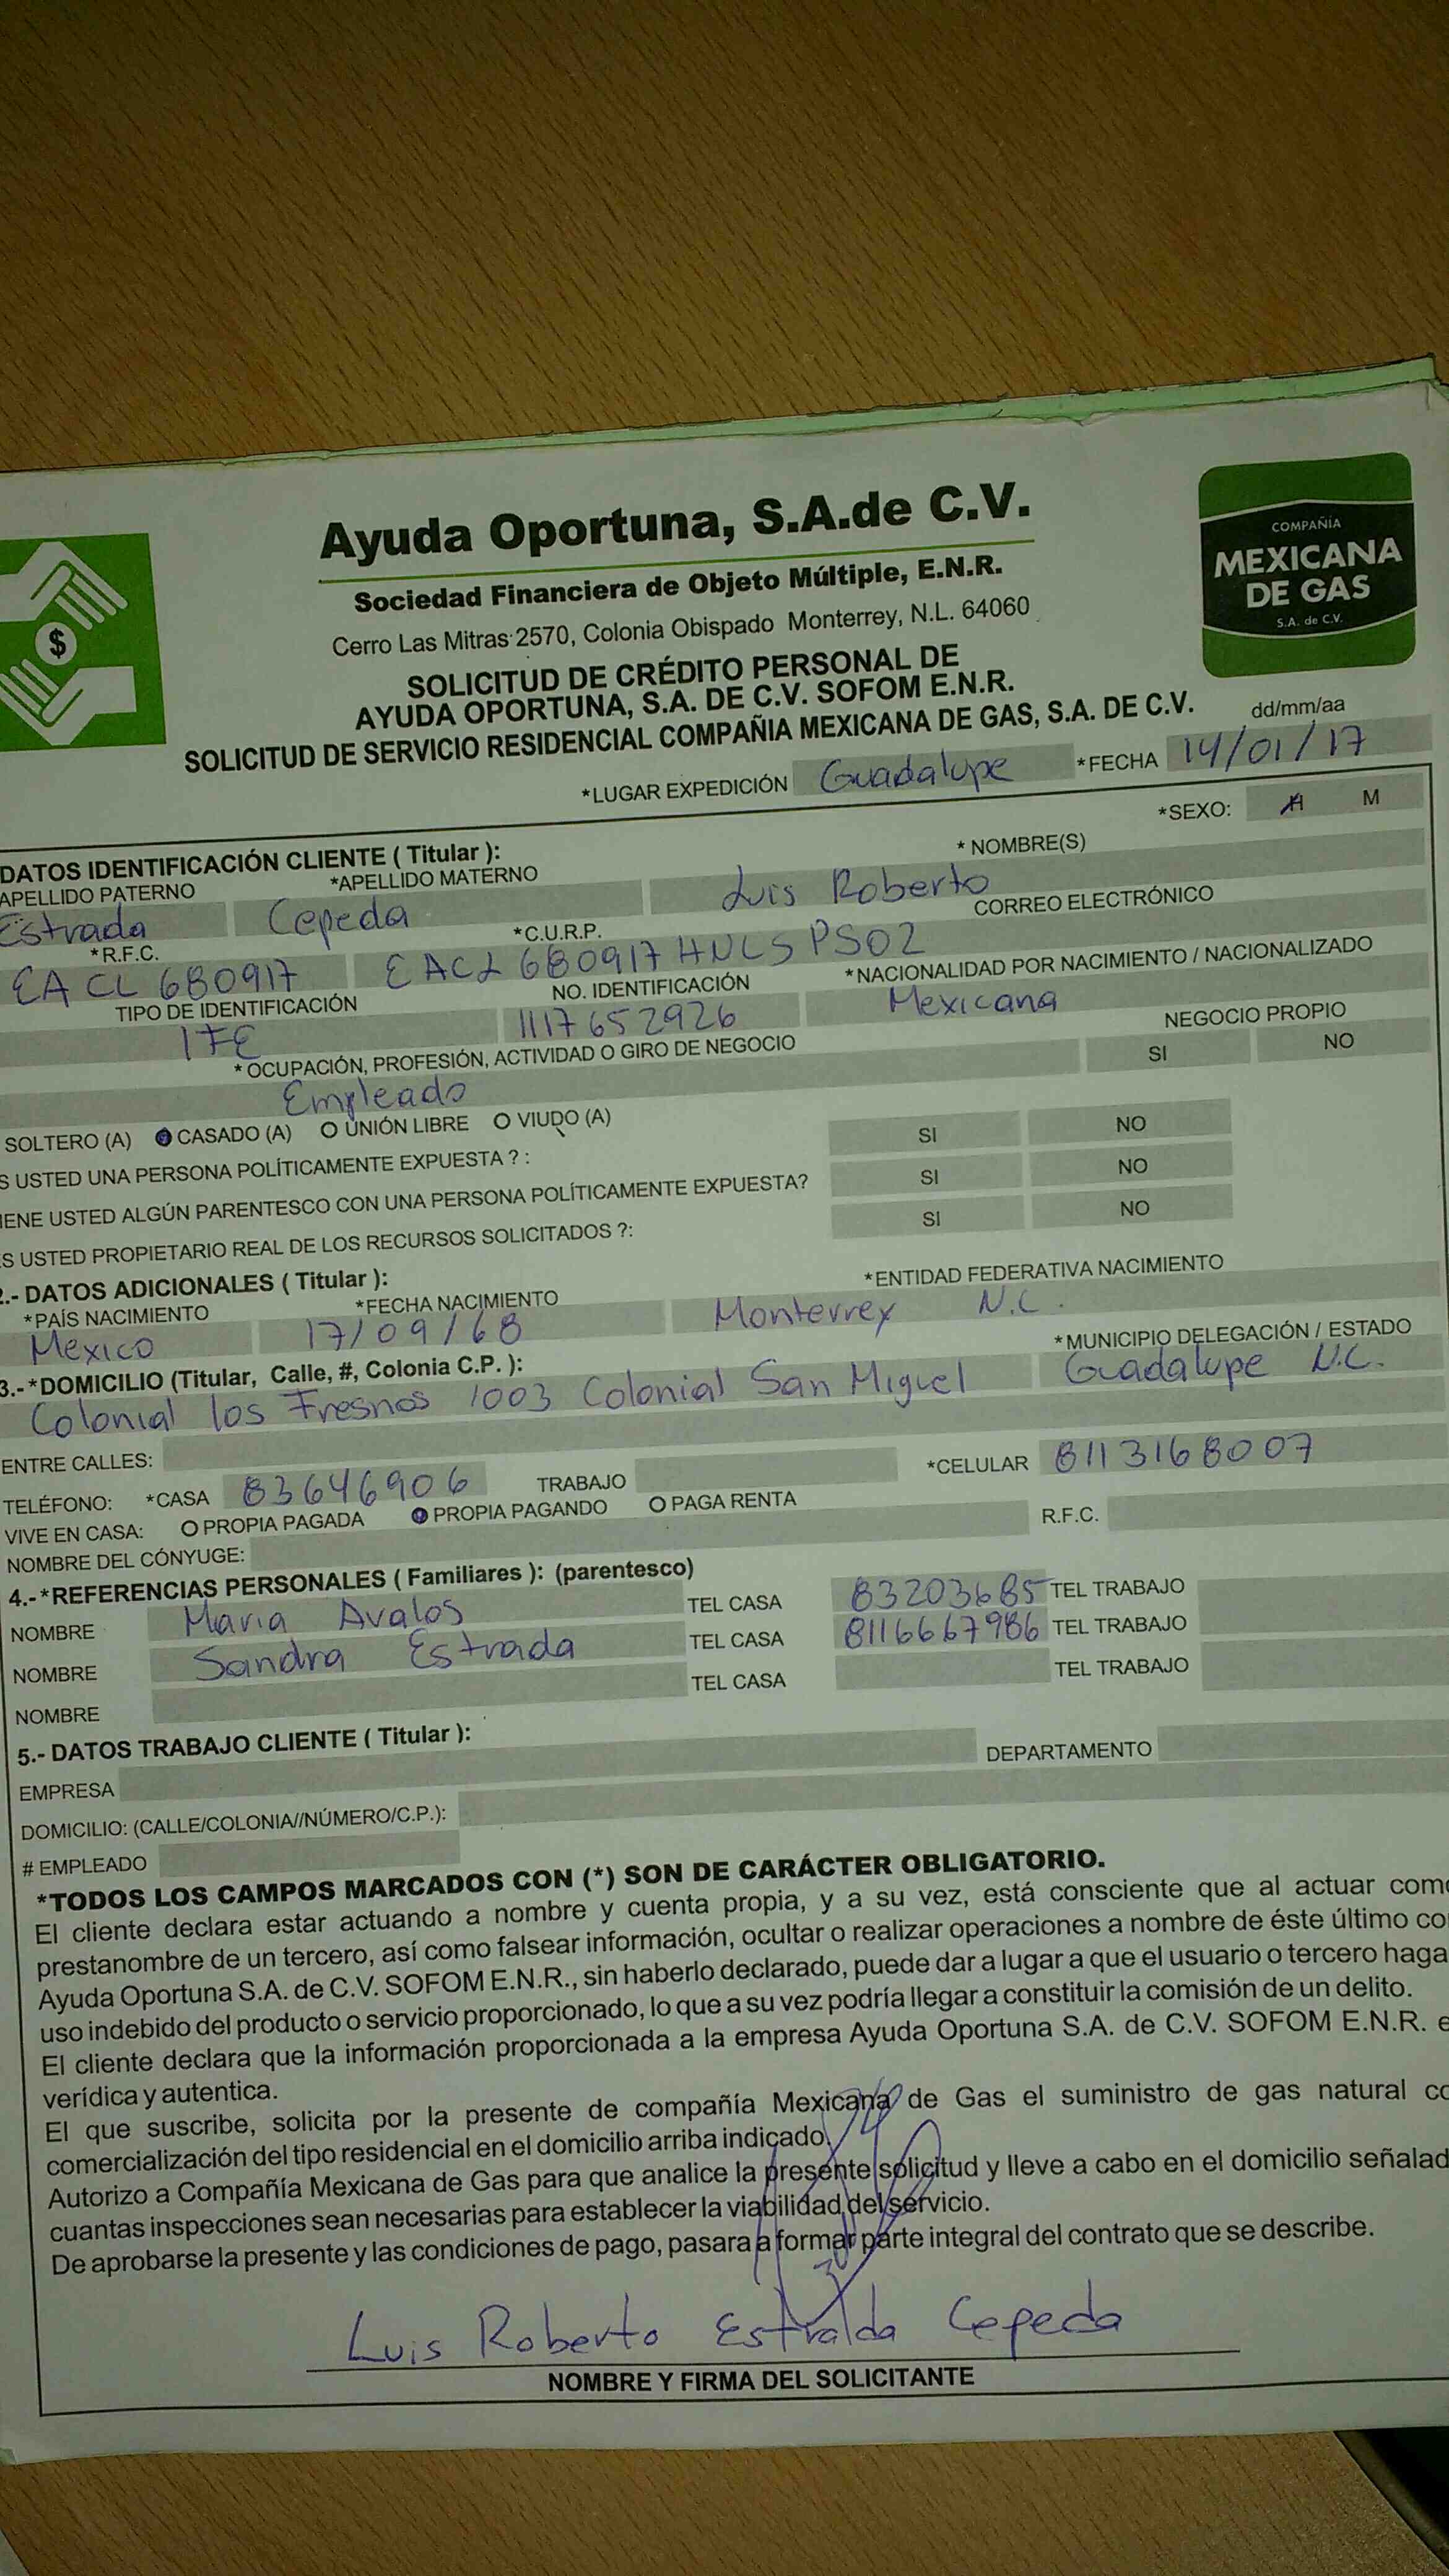 Ayuda Oportuna, S.A.de C.V.
Sociedad Financiera de Objeto Múltiple, E.N.R.
Cerro Las Mitras 2570, Colonia Obispado Monterrey, N.L. 64060
COMPAÑÍA
MEXICANA
DE GAS
S.A. de C.V.
$
SOLICITUD DE CRÉDITO PERSONAL DE
AYUDA OPORTUNA, S.A. DE C.V. SOFOM E.N.R.
SOLICITUD DE SERVICIO RESIDENCIAL COMPAÑIA MEXICANA DE GAS, S.A. DE C.V.
dd/mm/aa
*LUGAR EXPEDICIÓN Guadalupe *FECHA 14/01/17
*SEXO: H M
DATOS IDENTIFICACIÓN CLIENTE ( Titular ):
APELLIDO PATERNO *APELLIDO MATERNO * NOMBRE(S)
Estrada Cepeda Luis Roberto
*R.F.C. *C.U.R.P. CORREO ELECTRÓNICO
EACL 680917 EACL 680917 HNLSPS02
TIPO DE IDENTIFICACIÓN NO. IDENTIFICACIÓN *NACIONALIDAD POR NACIMIENTO / NACIONALIZADO
IFE 1117652926 Mexicana
* OCUPACIÓN, PROFESIÓN, ACTIVIDAD O GIRO DE NEGOCIO NEGOCIO PROPIO
Empleado SI NO
SOLTERO (A) CASADO (A) O UNIÓN LIBRE O VIUDO (A)
S USTED UNA PERSONA POLÍTICAMENTE EXPUESTA ? : SI NO
IENE USTED ALGÚN PARENTESCO CON UNA PERSONA POLÍTICAMENTE EXPUESTA? SI NO
ES USTED PROPIETARIO REAL DE LOS RECURSOS SOLICITADOS ?: SI NO
2.- DATOS ADICIONALES ( Titular ):
*PAÍS NACIMIENTO *FECHA NACIMIENTO *ENTIDAD FEDERATIVA NACIMIENTO
Mexico 17/09/68 Monterrey N.L.
3.-*DOMICILIO (Titular, Calle, #, Colonia C.P. ): *MUNICIPIO DELEGACIÓN / ESTADO
Colonial los Fresnos 1003 Colonial San Miguel Guadalupe N.L.
ENTRE CALLES:
TELÉFONO: *CASA 83646906 TRABAJO *CELULAR 8113168007
VIVE EN CASA: O PROPIA PAGADA PROPIA PAGANDO O PAGA RENTA
NOMBRE DEL CÓNYUGE: R.F.C.
4.-*REFERENCIAS PERSONALES ( Familiares ): (parentesco)
NOMBRE Maria Avalos TEL CASA 83203685 TEL TRABAJO
NOMBRE Sandra Estrada TEL CASA 8116667986 TEL TRABAJO
NOMBRE TEL CASA TEL TRABAJO
5.- DATOS TRABAJO CLIENTE ( Titular ):
EMPRESA DEPARTAMENTO
DOMICILIO: (CALLE/COLONIA//NÚMERO/C.P.):
# EMPLEADO
*TODOS LOS CAMPOS MARCADOS CON (*) SON DE CARÁCTER OBLIGATORIO.
El cliente declara estar actuando a nombre y cuenta propia, y a su vez, está consciente que al actuar como
prestanombre de un tercero, así como falsear información, ocultar o realizar operaciones a nombre de éste último co
Ayuda Oportuna S.A. de C.V. SOFOM E.N.R., sin haberlo declarado, puede dar a lugar a que el usuario o tercero haga
uso indebido del producto o servicio proporcionado, lo que a su vez podría llegar a constituir la comisión de un delito.
El cliente declara que la información proporcionada a la empresa Ayuda Oportuna S.A. de C.V. SOFOM E.N.R. e
verídica y autentica.
El que suscribe, solicita por la presente de compañía Mexicana de Gas el suministro de gas natural co
comercialización del tipo residencial en el domicilio arriba indicado.
Autorizo a Compañía Mexicana de Gas para que analice la presente solicitud y lleve a cabo en el domicilio señalad
cuantas inspecciones sean necesarias para establecer la viabilidad del servicio.
De aprobarse la presente y las condiciones de pago, pasara a formar parte integral del contrato que se describe.
Luis Roberto Estralda Cepeda
NOMBRE Y FIRMA DEL SOLICITANTE